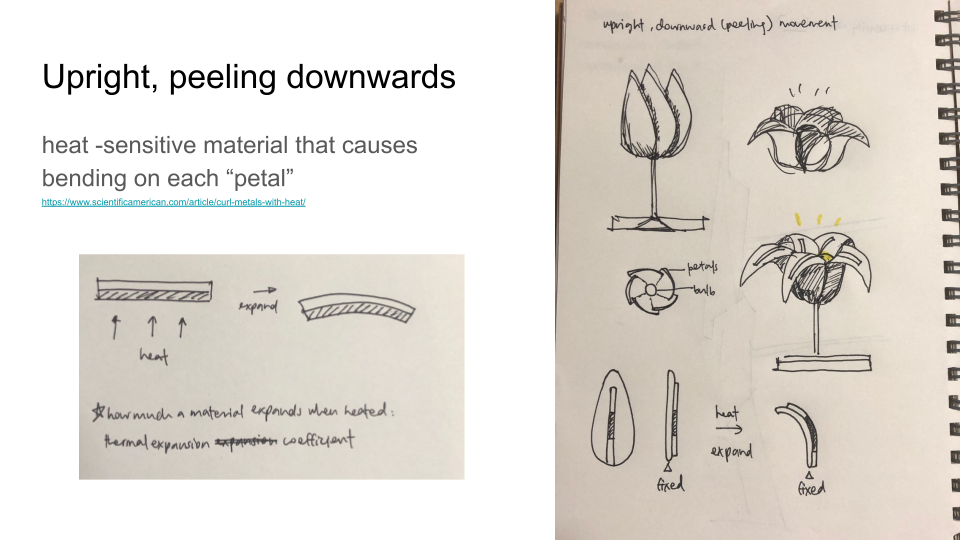 Upright, peeling downwards
heat -sensitive material that causes
bending on each “petal”
https://www.scientificamerican.com/article/curl-metals-with-heat/
expand
heat
☆how much a material expands when heated:
thermal expansion expansion coefficient
upright, downward (peeling) movement
petals
bulb
heat
expand
fixed
fixed